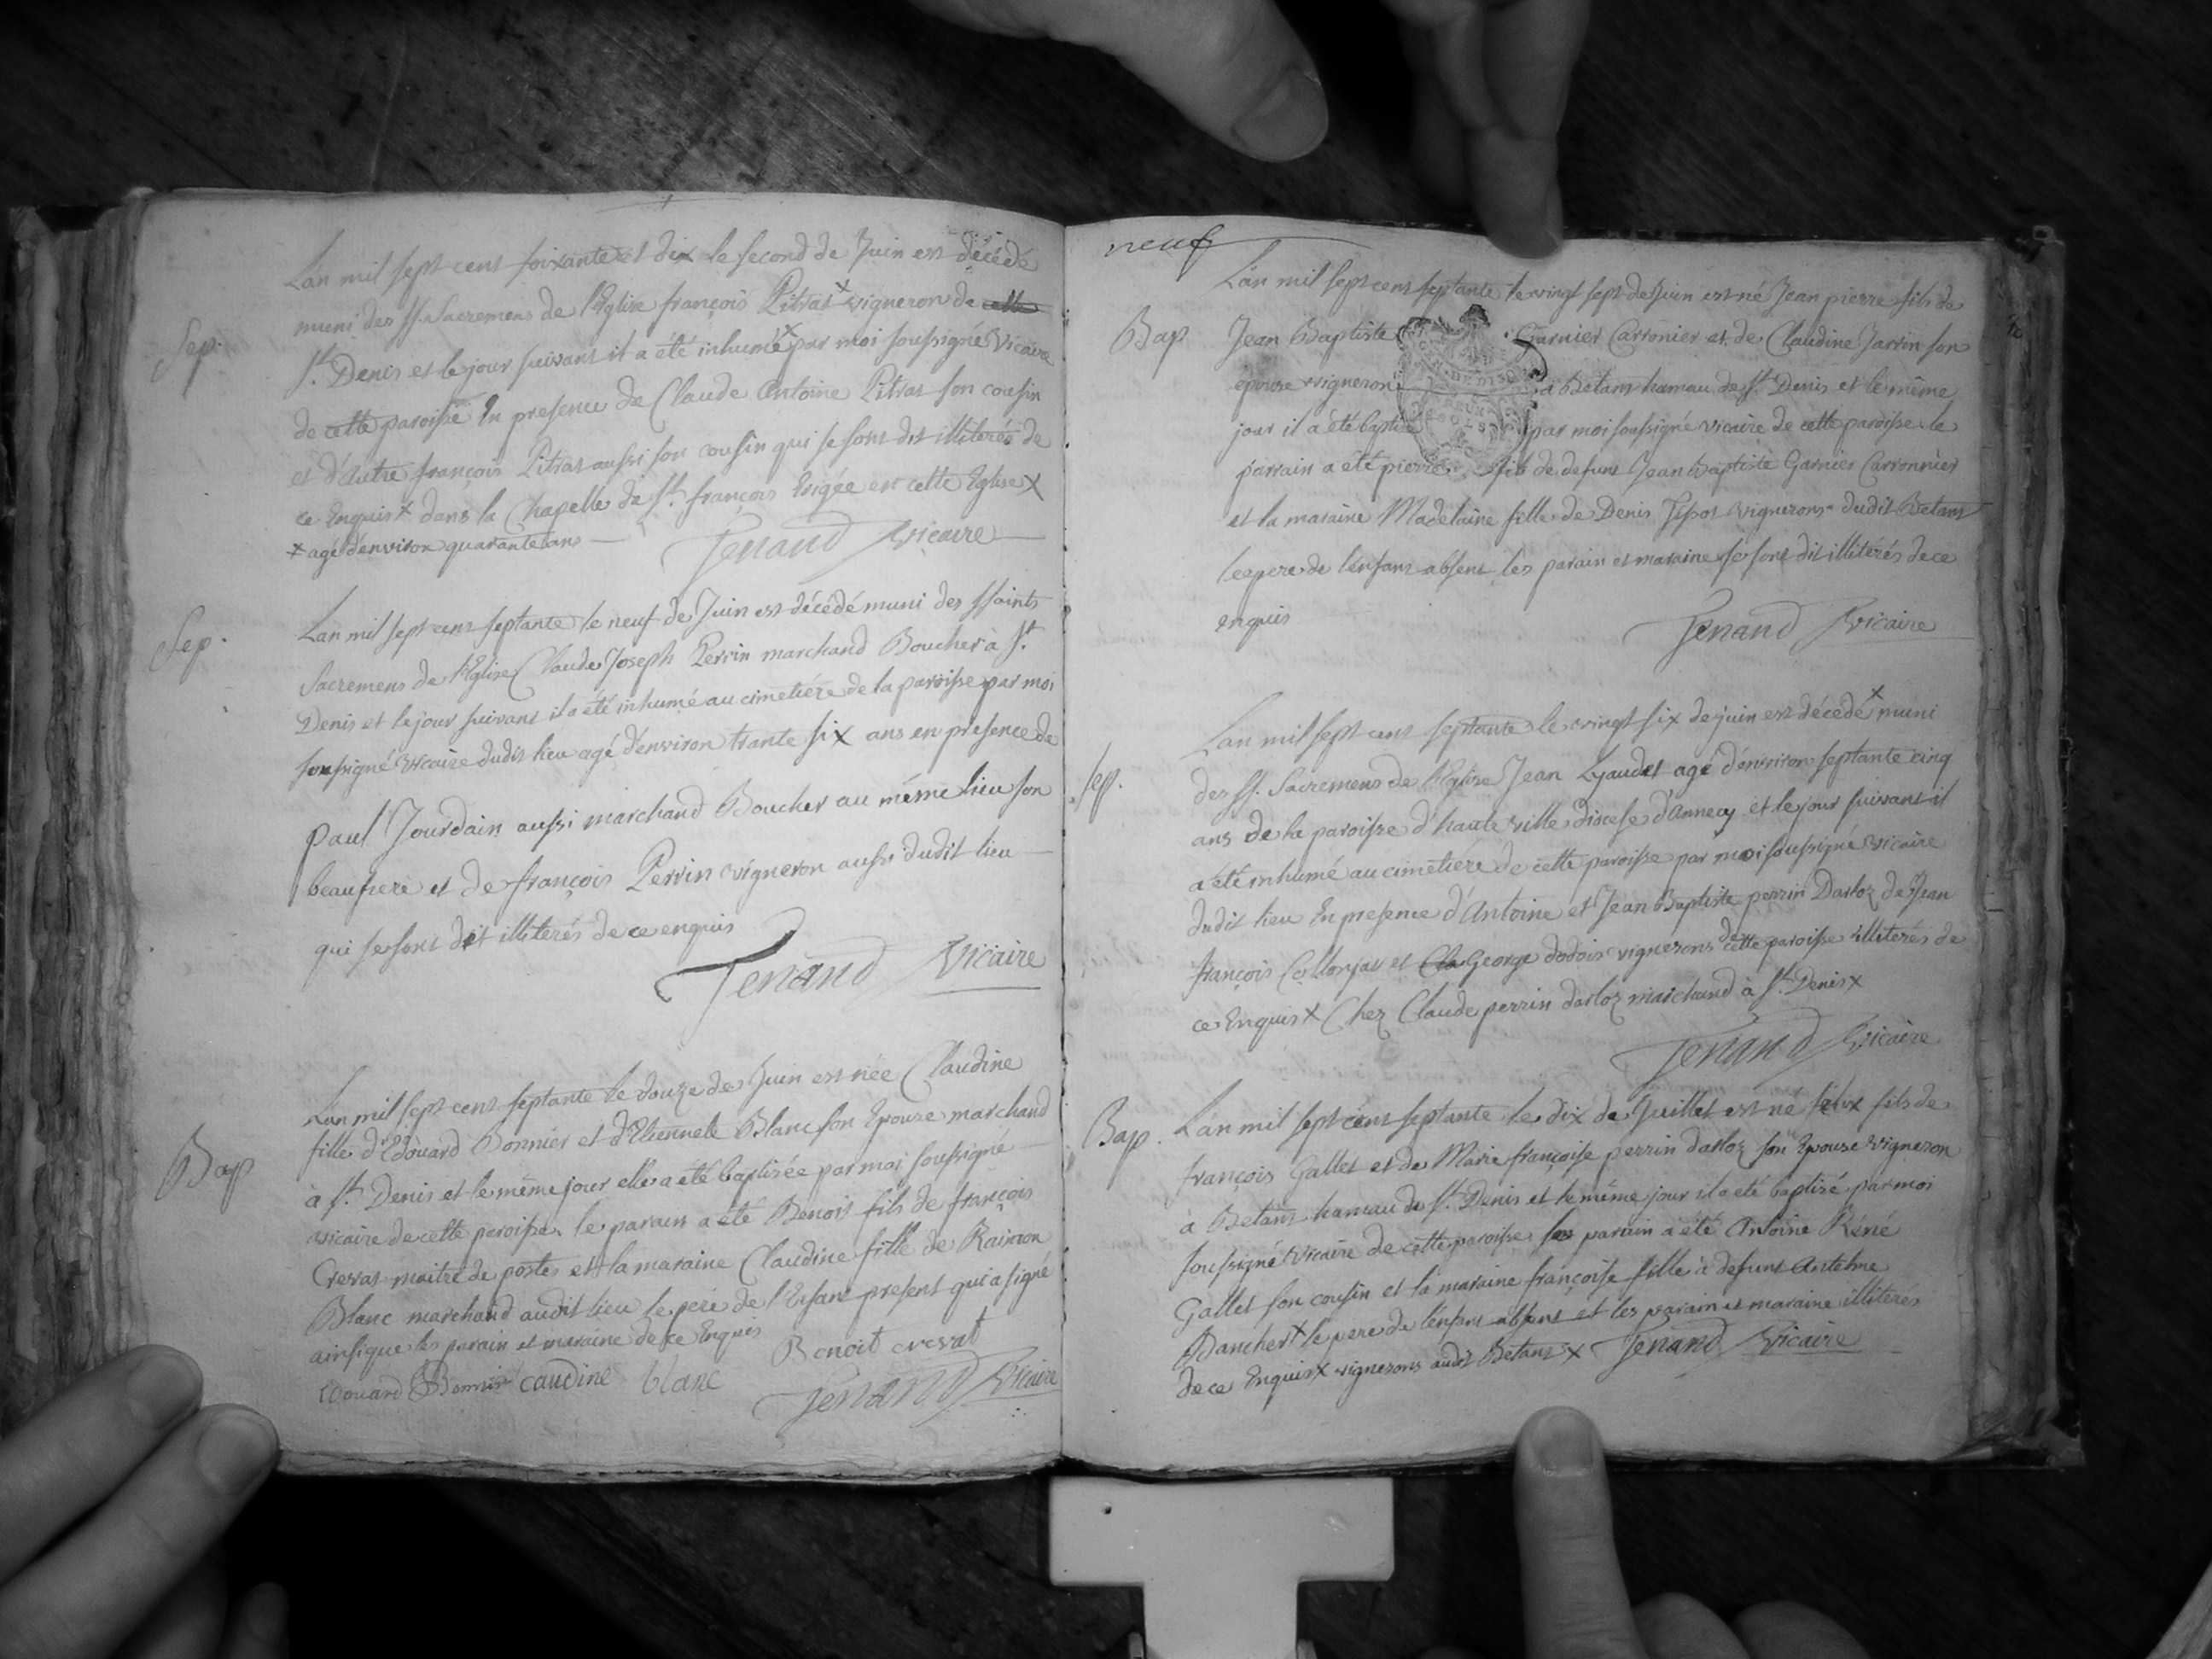 Sep.
Lan mil sept cent soixante et dix le second de Juin est décédé
muni des SS. Sacremens de l'Eglise françois Pitrat x vigneron de
St. Denis et le jour suivant il a été inhumé x par moi soussigné Vicaire
de cette paroisse En presence de Claude Antoine Pitrat son cousin
et d'autre françois Pitrat aussi son cousin qui se sont dit illiterés de
ce Enquis x dans la Chapelle de St. françois Erigée en cette Eglise x
x agé d'environ quarante ans
Jenand Vicaire
Sep.
Lan mil sept cent septante le neuf de Juin est décédé muni des ssaints
Sacremens de l'Eglise Claude Joseph Perrin marchand Boucher a St.
Denis et le jour suivant il a été inhumé au cimetiére de la paroisse par moi
soussigné vicaire dudit lieu agé d'environ trante six ans en presence de
paul Jourdain aussi marchand Boucher au même lieu son
beaufrere et de françois Perrin vigneron aussi dudit lieu
qui se sont dit illiterés de ce enquis
Jenand Vicaire
Bap
Lan mil sept cent septante le douze de Juin est née Claudine
fille d'Edouard Bonnier et d'Etiennete Blanc son Epouse marchand
à St. Denis et le même jour elle a été baptisée par moi soussigné
vicaire de cette paroisse le parain a été Benoit fils de françois
Crevat maitre de postes et la maraine Claudine fille de Raimon
Blanc marchand audit lieu le pere de l'Enfant present qui a signé
ainsi que les parain et maraine de ce Enquis
Benoit crevat
Edouard Bonnier caudine blanc
Jenand Vicaire
neuf
Bap
Lan mil sept cent septante le vingt sept de Juin est né Jean pierre fils de
Jean Baptiste Garnier Carronier et de Claudine Jarrin son
épouse vigneron à Betant hameau de St. Denis et le même
jour il a été baptisé par moi soussigné vicaire de cette paroisse le
parrain a été pierre fils de defunt Jean baptiste Garnier Carronnier
et la maraine Madelaine fille de Denis vignerons dudit Betant
le pere de l'enfant absent les parain et maraine se sont dit illitérés de ce
enquis
Jenand Vicaire
Sep.
Lan mil sept cent septante le vingt six de juin est décedé x muni
des SS. Sacremens de l'Eglise Jean Lyaudet agé d'environ septante cinq
ans de la paroisse d'haute ville diocese d'Annecy et le jour suivant il
a été inhumé au cimetiére de cette paroisse par moi soussigné vicaire
dudit lieu En presence d'Antoine et Jean Baptiste perrin Darloz de Jean
françois Collonjat et George dodois vignerons de cette paroisse illiterés de
ce Enquis x Chez Claude perrin darloz marchand à St. Denis x
Jenand Vicaire
Bap.
Lan mil sept cent septante le dix de Juillet est né felix fils de
françois Gallet et de Marie françoise perrin darloz son Epouse vigneron
à Betant hameau de St. Denis et le même jour il a eté baptisé par moi
soussigné Vicaire de cette paroisse son parain a été Antoine Réné
Gallet son cousin et la maraine françoise fille à defunt Antelme
Dancher x le pere de l'enfant absent et les parain et maraine illiteres
de ce Enquis x vignerons audit Betant x Jenand Vicaire